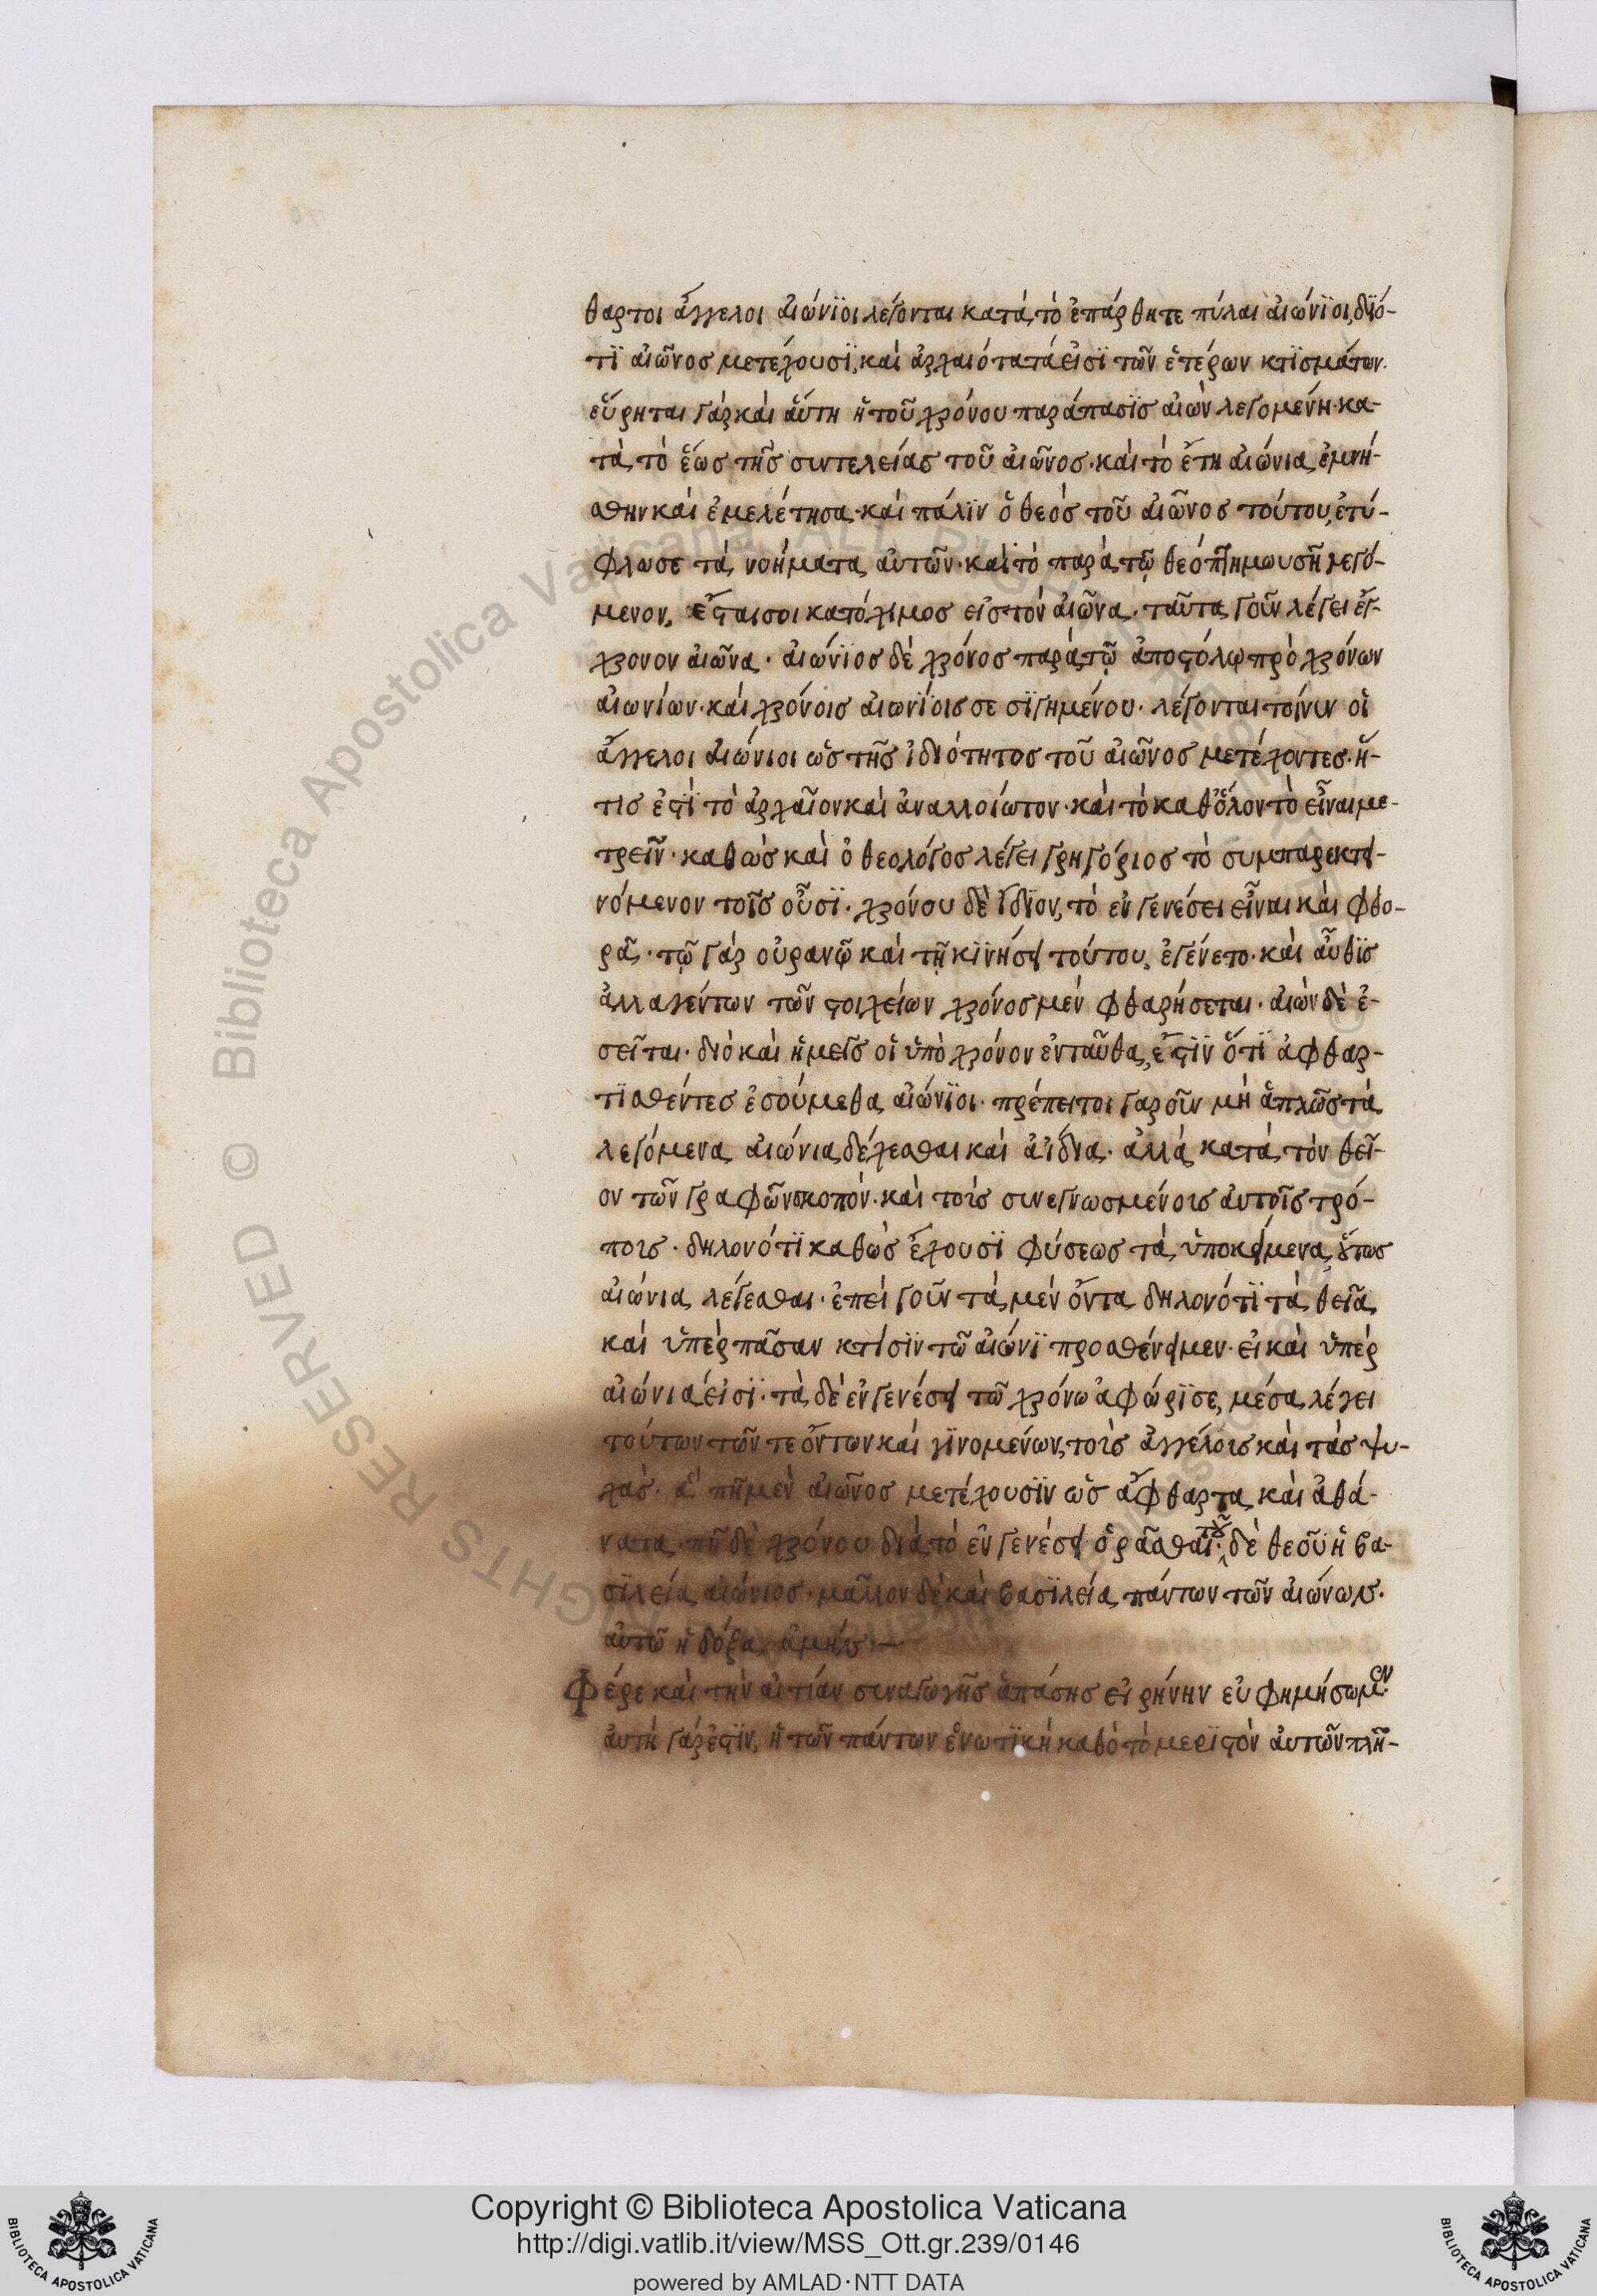 θαρτοι ἄγγελοι αἰώνϊοι λέγονται κατὰ τὸ ἐπάρθητε πύλαι αἰώνϊοι, δϊό-
τϊ αἰῶνος μετέχουσϊ, καὶ ἀρχαιότατά εἰσϊ τῶν ἑτέρων κτϊσμάτων.
εὕρηται γὰρ καὶ αὕτη ἡ τοῦ χρόνου παράτασϊς αἰὼν λεγομένη· κα-
τὰ τὸ ἕως τῆς συντελείας τοῦ αἰῶνος· καὶ τὸ ἔτη αἰώνια ἐμνή-
σθην καὶ ἐμελέτησα· καὶ πάλϊν ὁ θεὸς τοῦ αἰῶνος τούτου, ἐτύ-
φλωσε τὰ νοήματα αὐτῶν· καὶ τὸ παρὰ τῷ θεόπτῃ μωυσῆ λεγό-
μενον, ἔσται σοι κατόχιμος εἰς τὸν αἰῶνα· ταῦτα γοῦν λέγει ἔγ-
χρονον αἰῶνα· αἰώνϊος δὲ χρόνος παρὰ τῷ ἀποστόλῳ πρὸ χρόνων
αἰωνίων· καὶ χρόνοις αἰωνϊοις σεσϊγημένου· λέγονται τοίνυν οἱ
ἄγγελοι αἰώνιοι ὡς τῆς ἰδιότητος τοῦ αἰῶνος μετέχοντες· ἥ-
τις ἐστὶ τὸ ἀρχαῖον καὶ ἀναλλοίωτον· καὶ τὸ καθόλον τὸ εἶναι με-
τρεῖν· καθὼς καὶ ὁ θεολόγος λέγει γρηγόριος τὸ συμπαρεκτει-
νόμενον τοῖς οὖσϊ· χρόνου δὲ ἴδϊον, τὸ ἐν γενέσει εἶναι καὶ φθο-
ρᾷ· τῷ γὰρ οὐρανῷ καὶ τῇ κϊνήσει τούτου, ἐγένετο· καὶ αὖθϊς
ἀλλαγέντων τῶν στοιχείων χρόνος μὲν φθαρήσεται· αἰὼν δὲ ἐ-
σεῖται· διὸ καὶ ἡμεῖς οἱ ὑπὸ χρόνον ἐνταῦθα, ἔστϊν ὅτϊ ἀφθαρ-
τϊσθέντες ἐσούμεθα αἰώνϊοι· πρέπει τοι γαροῦν μὴ ἁπλῶς τὰ
λεγόμενα αἰώνια δέχεσθαι καὶ ἀΐδια· ἀλλὰ κατὰ τὸν θεῖ-
ον τῶν γραφῶν σκοπόν· καὶ τοῖς συνεγνωσμένοις αὐτοῖς τρό-
ποις· δηλονότϊ καθὼς ἔχουσϊ φύσεως τὰ ὑποκείμενα, οὕτως
αἰώνια λέγεσθαι· ἐπεὶ γοῦν τὰ μὲν ὄντα δηλονότϊ τὰ θεῖα
καὶ ὑπὲρ πᾶσαν κτίσϊν τῶ αἰώνϊ προσθένειμεν· εἰ καὶ ὑπὲρ
αἰώνιά εἰσϊ· τὰ δὲ ἐν γενέσει τῶ χρόνω ἀφώρϊσε, μέσα λέγει
τούτων τῶν τε ὄντων καὶ γϊνομένων, τοὶς ἀγγέλοις καὶ τὰς ψυ-
χὰς· ἃ πῆ μὲν αἰῶνος μετέχουσϊν ὡς ἄφθαρτα καὶ ἀθά-
νατα· πῆ δὲ χρόνου διὰ τὸ ἐν γενέσει ὁρᾶσθαι· τοῦ δὲ θεοῦ ἡ βα-
σϊλεία αἰώνιος· μᾶλλον δὲ καὶ βασϊλεία πάντων τῶν αἰώνων.
αὐτῶ ἡ δόξα ἀμήν:—
Φέρε καὶ τὴν αἰτίαν συναγωγῆς ἁπάσης εἰρήνην εὐφημήσωμεν·
αὐτὴ γάρ ἐστϊν, ἡ τῶν πάντων ἑνωτϊκὴ καθὸ τὸ μερϊστὸν αὐτῶν πλῆ-
Copyright © Biblioteca Apostolica Vaticana
http://digi.vatlib.it/view/MSS_Ott.gr.239/0146
powered by AMLAD·NTT DATA